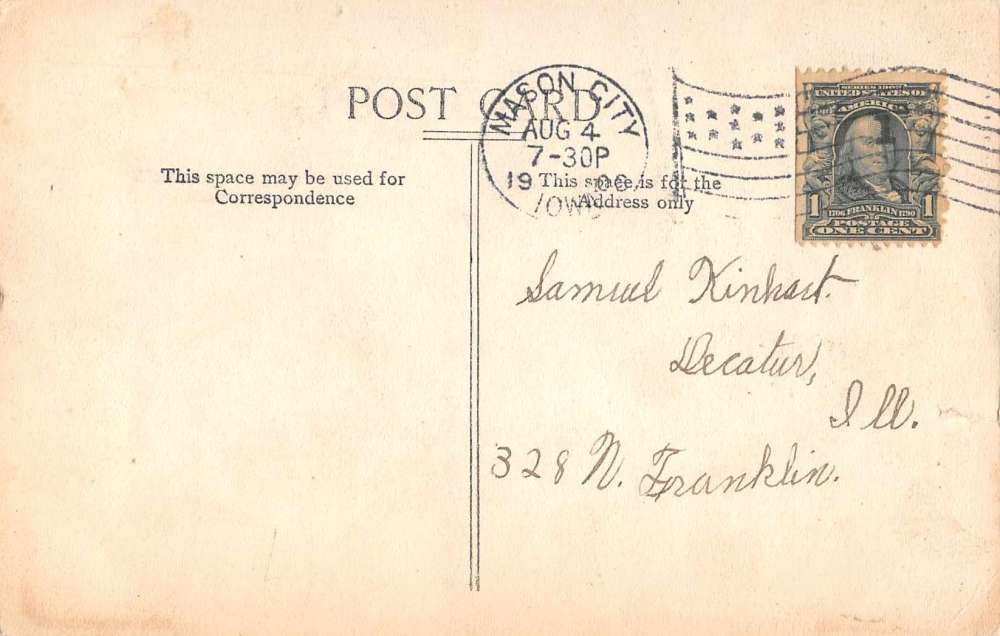 POST CARD
This space may be used for
Correspondence
This space is for the
Address only
MASON CITY
AUG 4
7-30P
19
IOWA
SERIES 1902
UNITED STATES OF
AMERICA
1
1
1706 FRANKLIN 1790
POSTAGE
ONE CENT
Samuel Kinhart.
Decatur,
Ill.
328 N. Franklin.